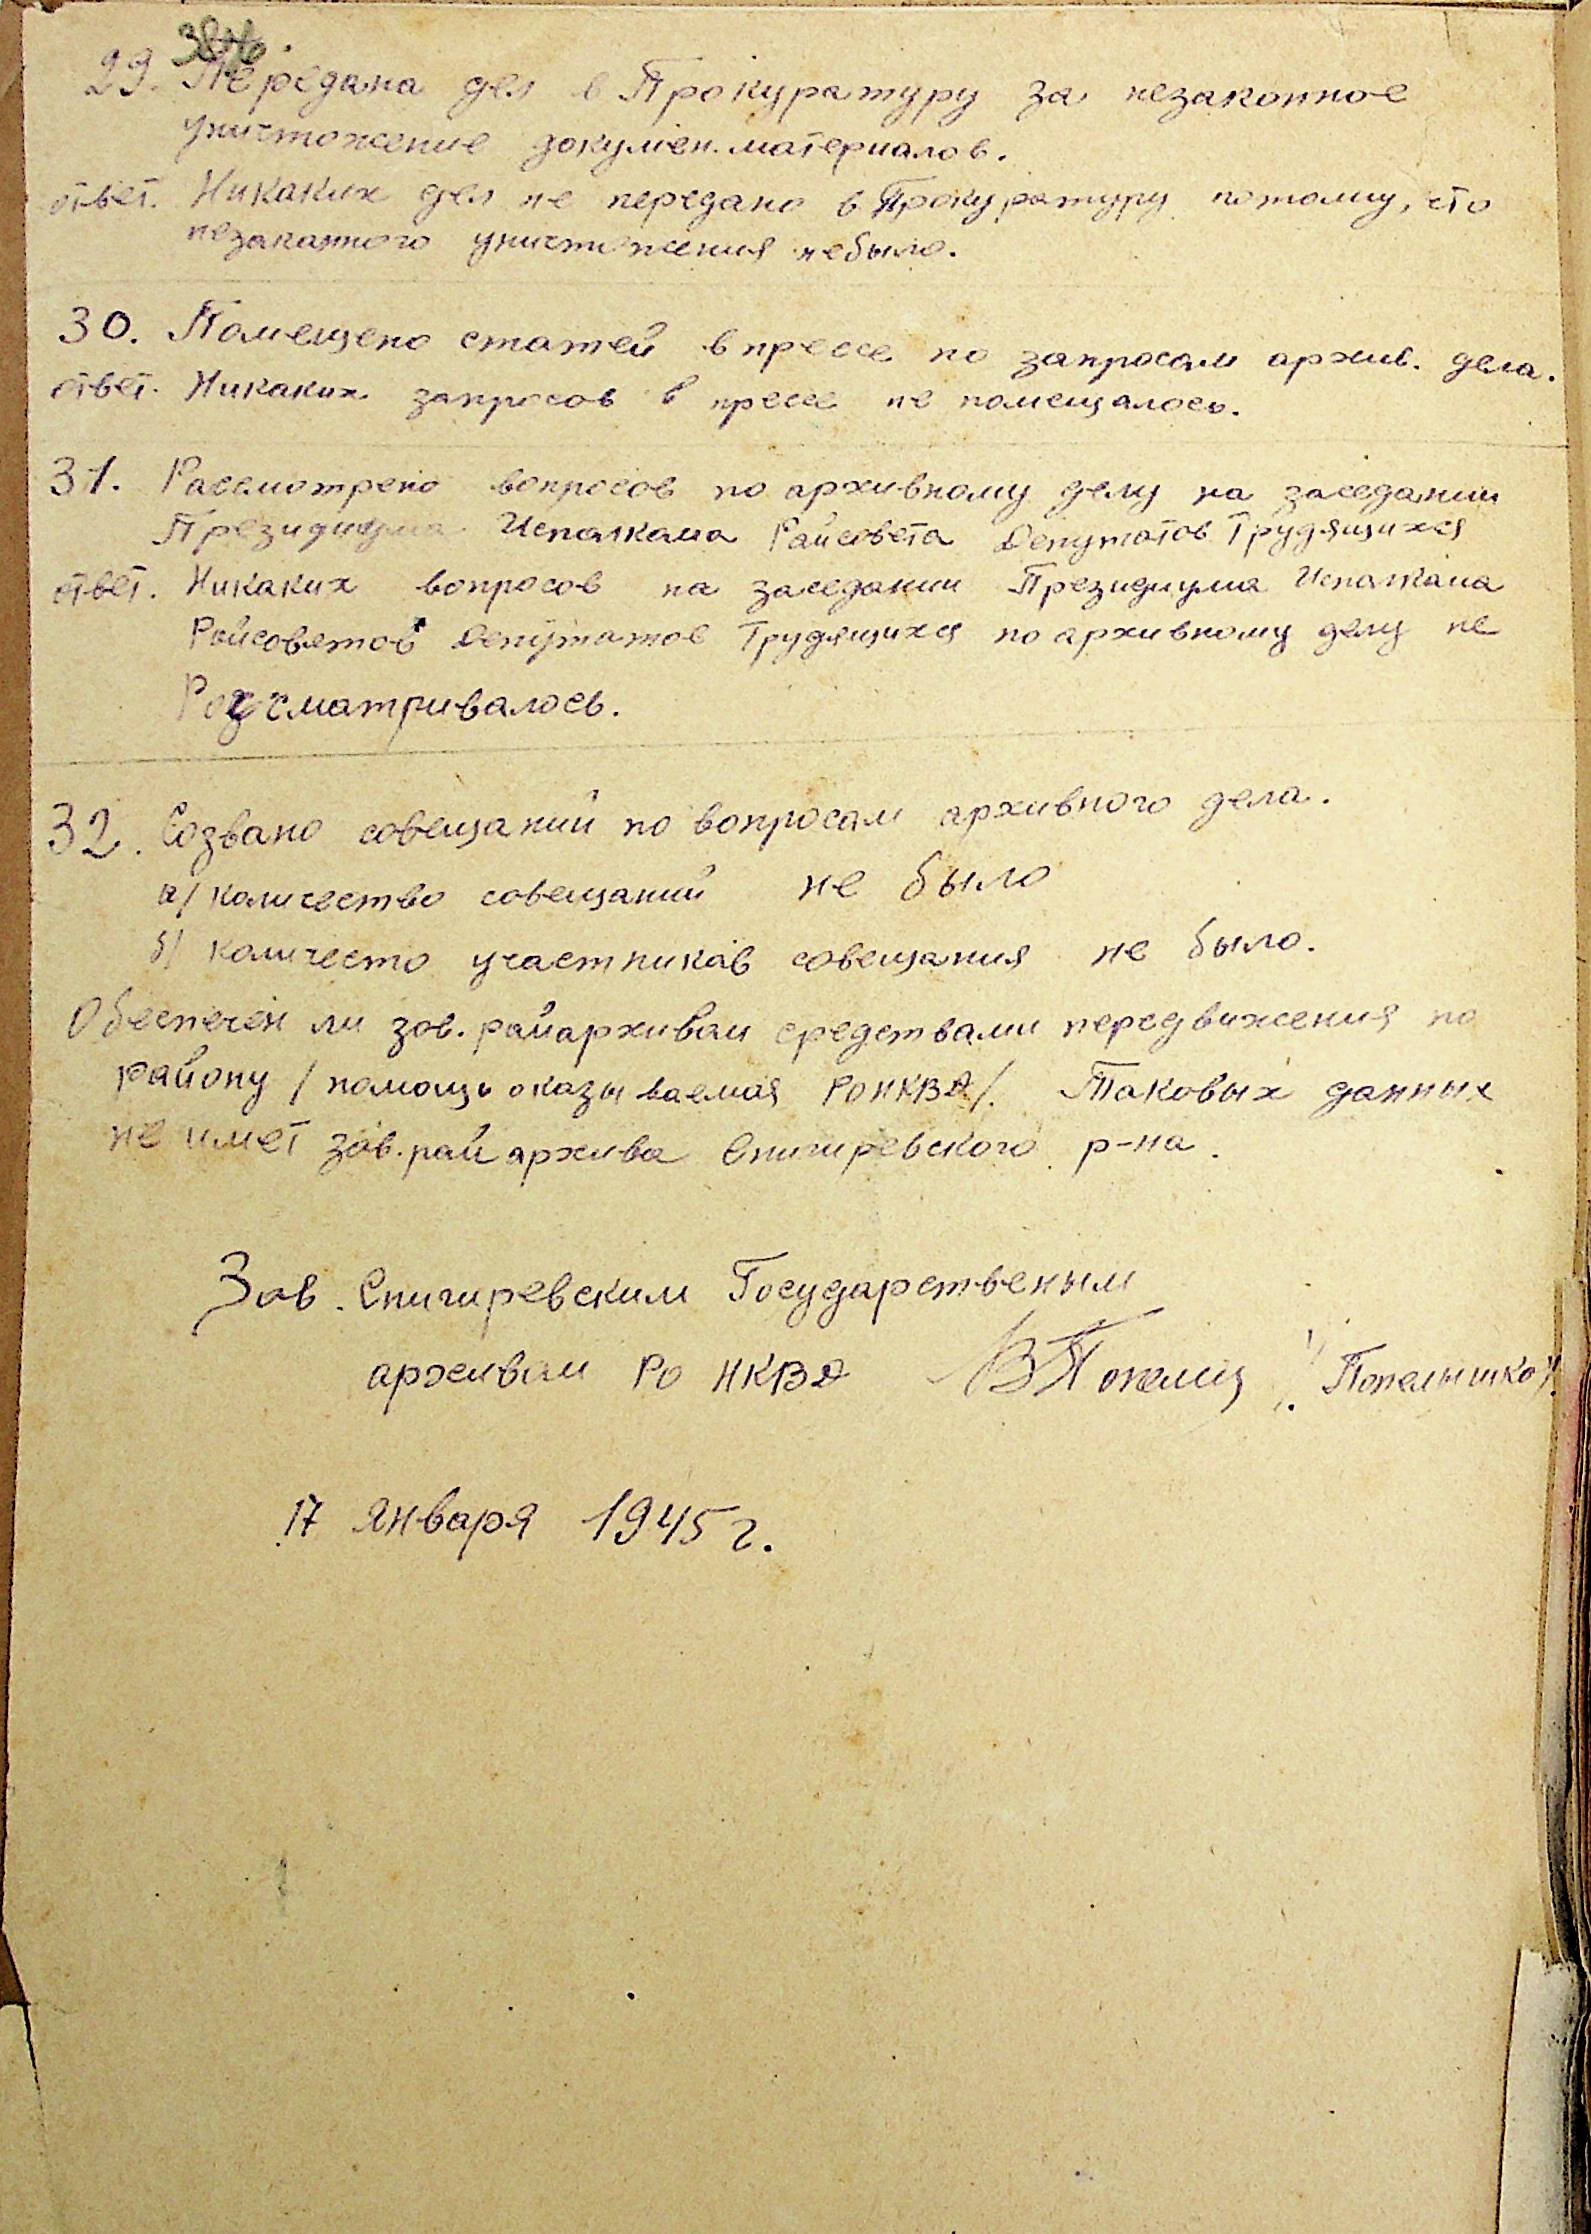 29. Передана дел в Прокуратуру за незаконное
уничтожение докумен. материалов.
ответ. Никаких дел не передано в Прокуратуру потому, что
незаканного уничтожения небыло.
30. Помещено статей в прессе по запросам архив. дела.
ответ. Никаких запросов в прессе не помещалось.
31. Рассмотрено вопросов по архивному делу на заседании
Президиума Испалкама Райсовета Депутатов Трудящихся
ответ. Никаких вопросов на заседании Президиума Испалкама
Райсоветов Депутатов Трудящихся по архивному делу не
Рассматривалось.
32. Созвано совещаний по вопросам архивного дела.
а/ количество совещаний не было
б/ количесто участников совещания не было.
Обеспечен ли зав. райархивам средствами передвижения по
району / помощь оказываемая РОНКВД/. Таковых данных
не имет зав. райархива Снигиревского р-на.
Зав. Снигиревским Государственым
архивам РО НКВД /Попелышко/.
17 января 1945 г.